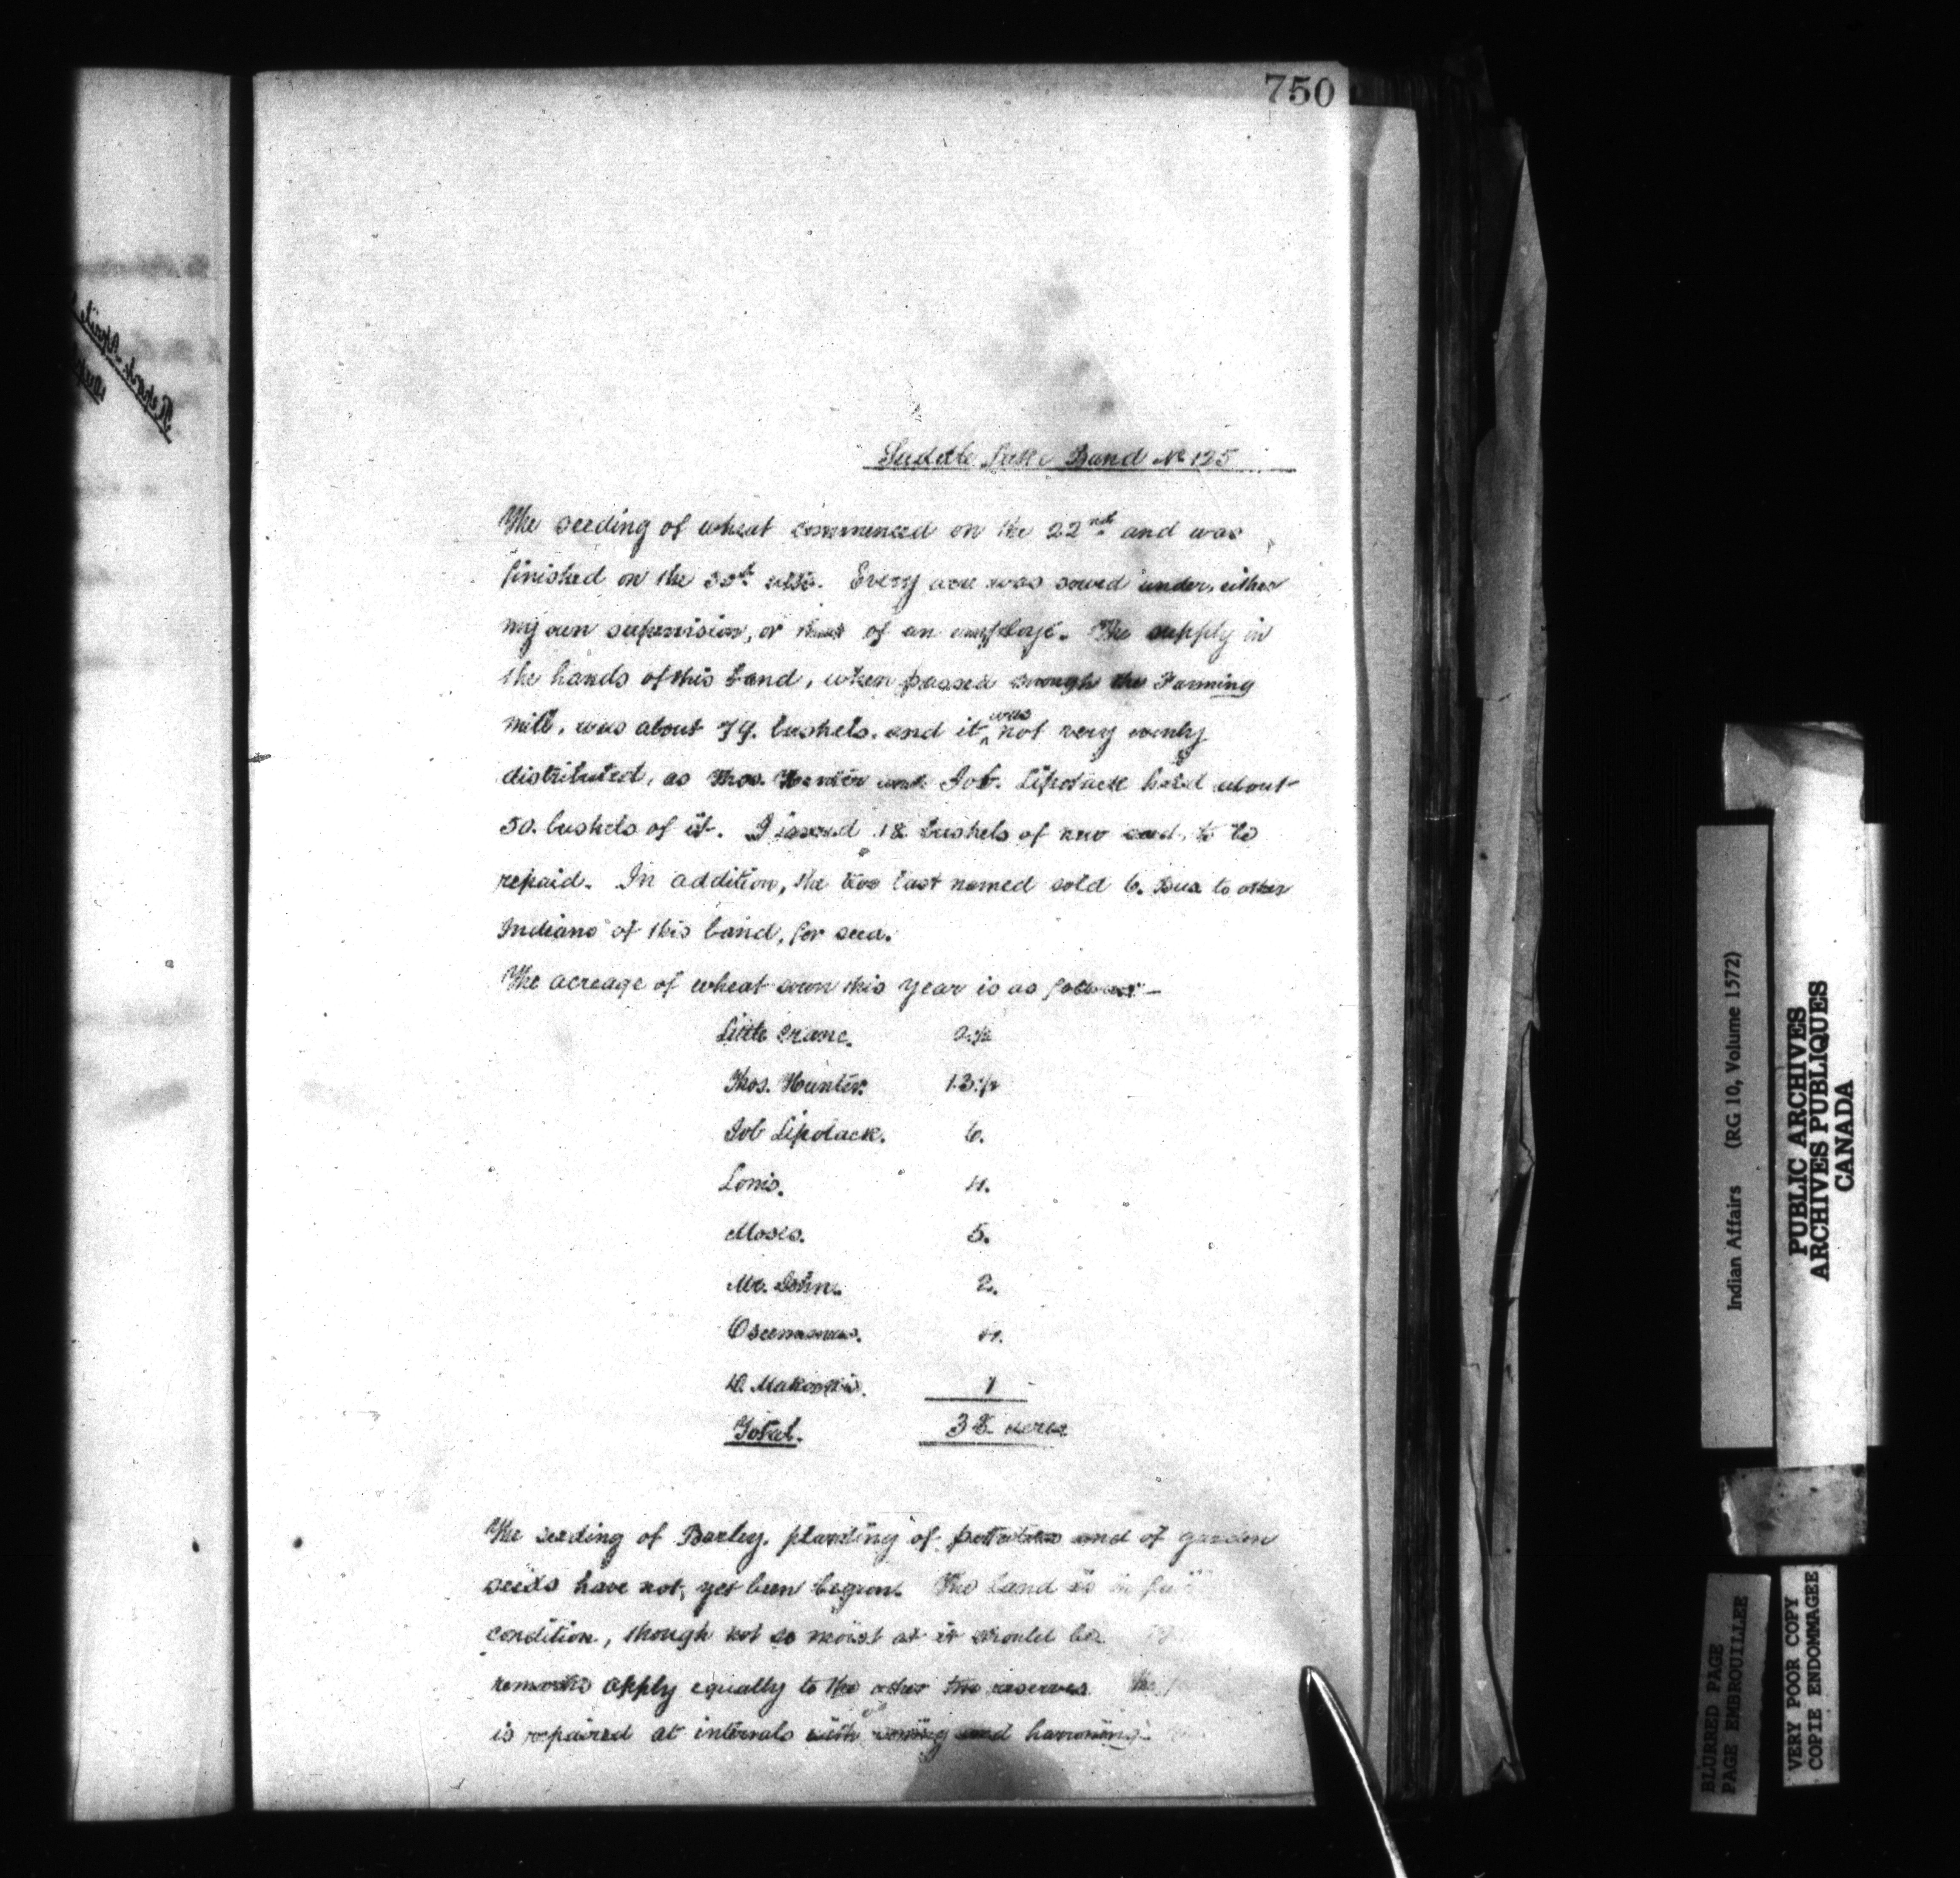 750
Saddle Lake Band No 125
The seeding of wheat commenced on the 22nd and was
finished on the 30th ulto. Every acre was sowed under, either
my own supervision, or that of an employé. The supply in
the hands of this band, when passed through the Fanning
mill, was about 79. bushels. and it was not very evenly
distributed, as Thos. Hunter and Job. Lipotack held about
50. bushels of it. I issued 18 bushels of new seed, to be
repaid. In addition, the two last named sold 6. Bus to other
Indians of this band, for seed.
The acreage of wheat sown this year is as follows:—
Little Crane. 2.½
Thos. Hunter. 13.½
Job Lipotack. 6.
Louis. 4.
Moses. 5.
Mr. John. 2.
4.
1
Total. 38 acres
The seeding of Barley. planting of potatoes and of garden
seeds have not, yet been begun. The land is in
condition, though not so moist as it should be.
remarks apply equally to the other two reserves. The
is repaired at intervals with and harrowing.
Indian Affairs (RG 10, Volume 1572)
PUBLIC ARCHIVES
ARCHIVES PUBLIQUES
CANADA
BLURRED PAGE
PAGE EMBROUILLEE
VERY POOR COPY
COPIE ENDOMMAGEE